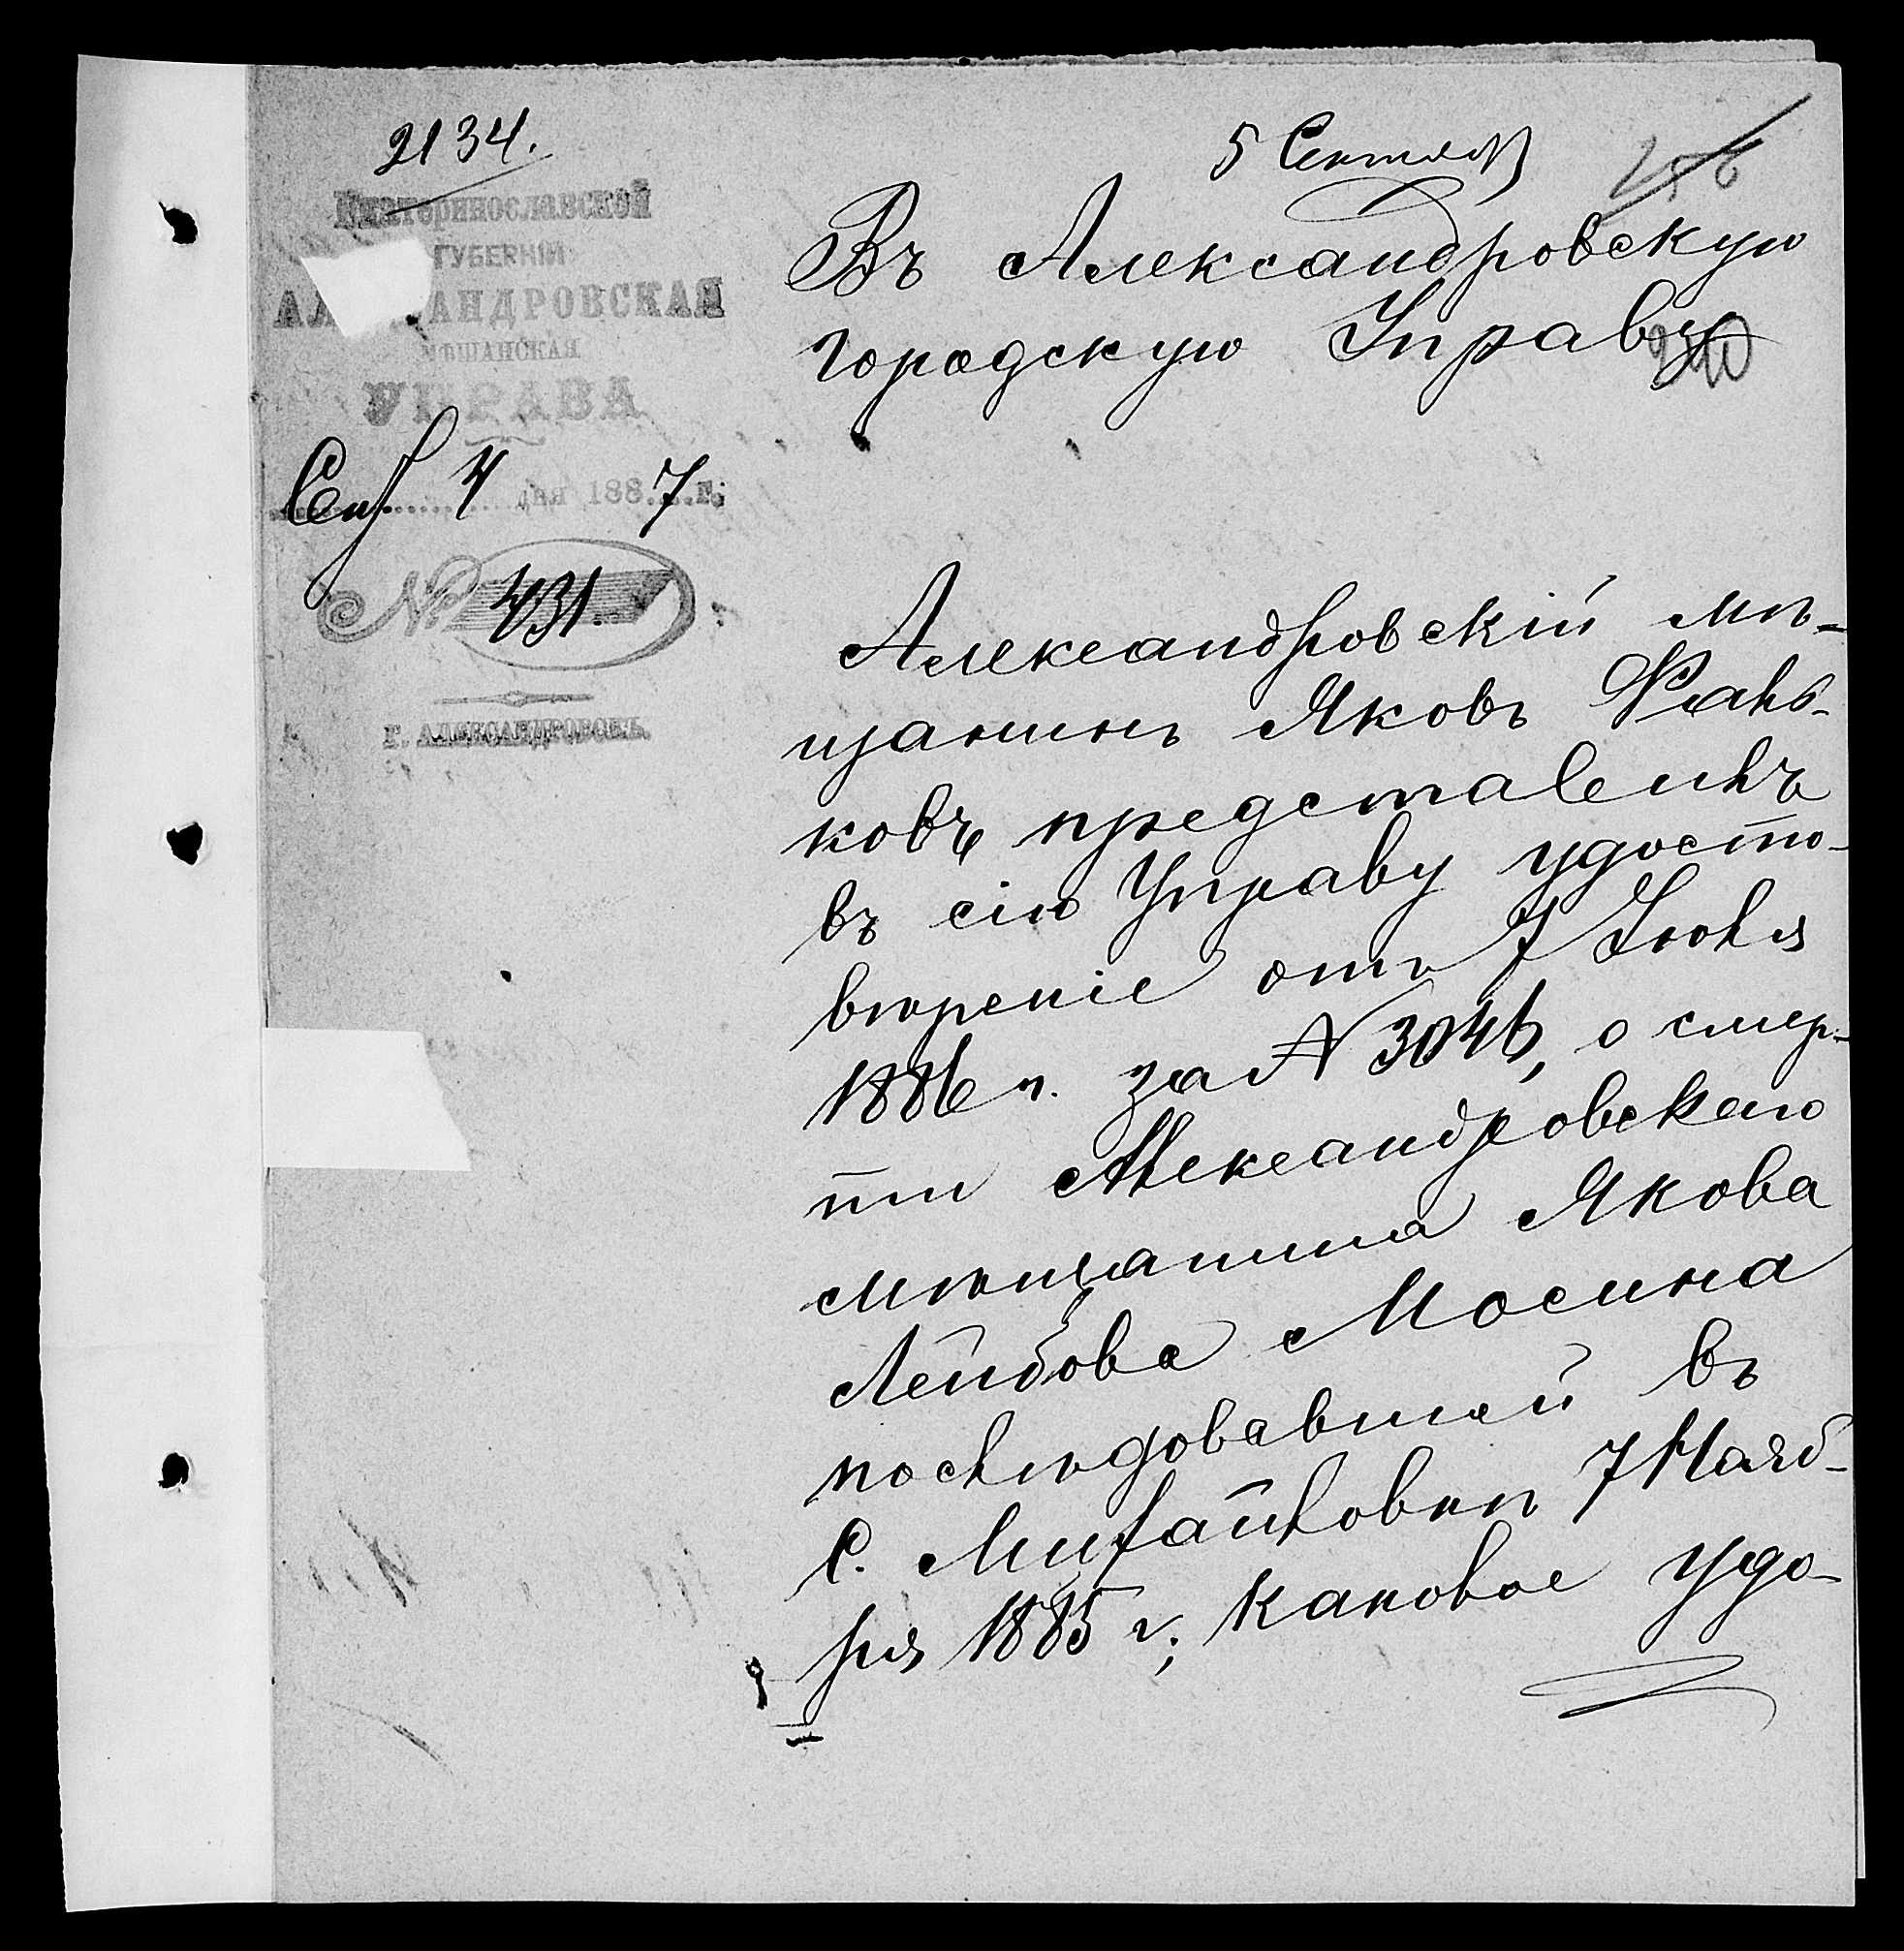 2134.
5 Сентяб
256
Екатеринославской
ГУБЕРНІИ
АЛЕКСАНДРОВСКАЯ
МѢЩАНСКАЯ
УПРАВА
Сен. 4 дня 1887 г.
№ 431.
г. АЛЕКСАНДРОВСКЪ.
Въ Александровскую
городскую Управу
240
Александровскій мѣ-
щанинъ Яковъ Фаль-
ковъ представилъ
въ сію Управу удосто-
вѣреніе отъ 7 Іюля
1886 г. за № 3046, о смер-
ти Александровскаго
мѣщанина Якова
Лейбова Мосина
послѣдовавшей въ
с. Михайловкѣ 7 Нояб-
ря 1885 г., каковое удо-